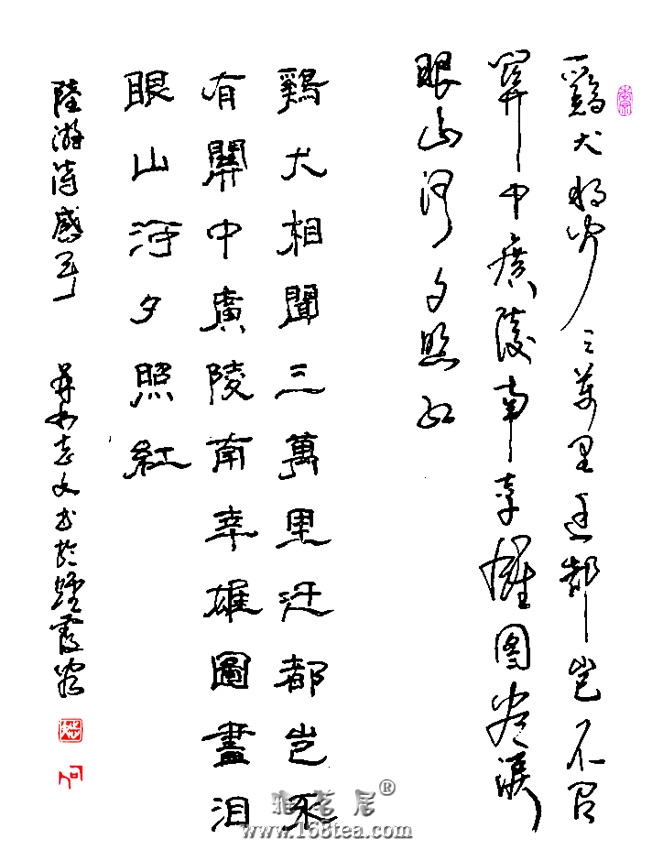 鷄犬相聞三萬里迁都岂不有
關中廣陵南幸雄圖盡淚
眼山河夕照紅
鷄犬相聞三萬里迁都岂不
有關中廣陵南幸雄圖盡泪
眼山河夕照紅
陸游詩感事
志文书於
雅茗居®
www.168tea.com